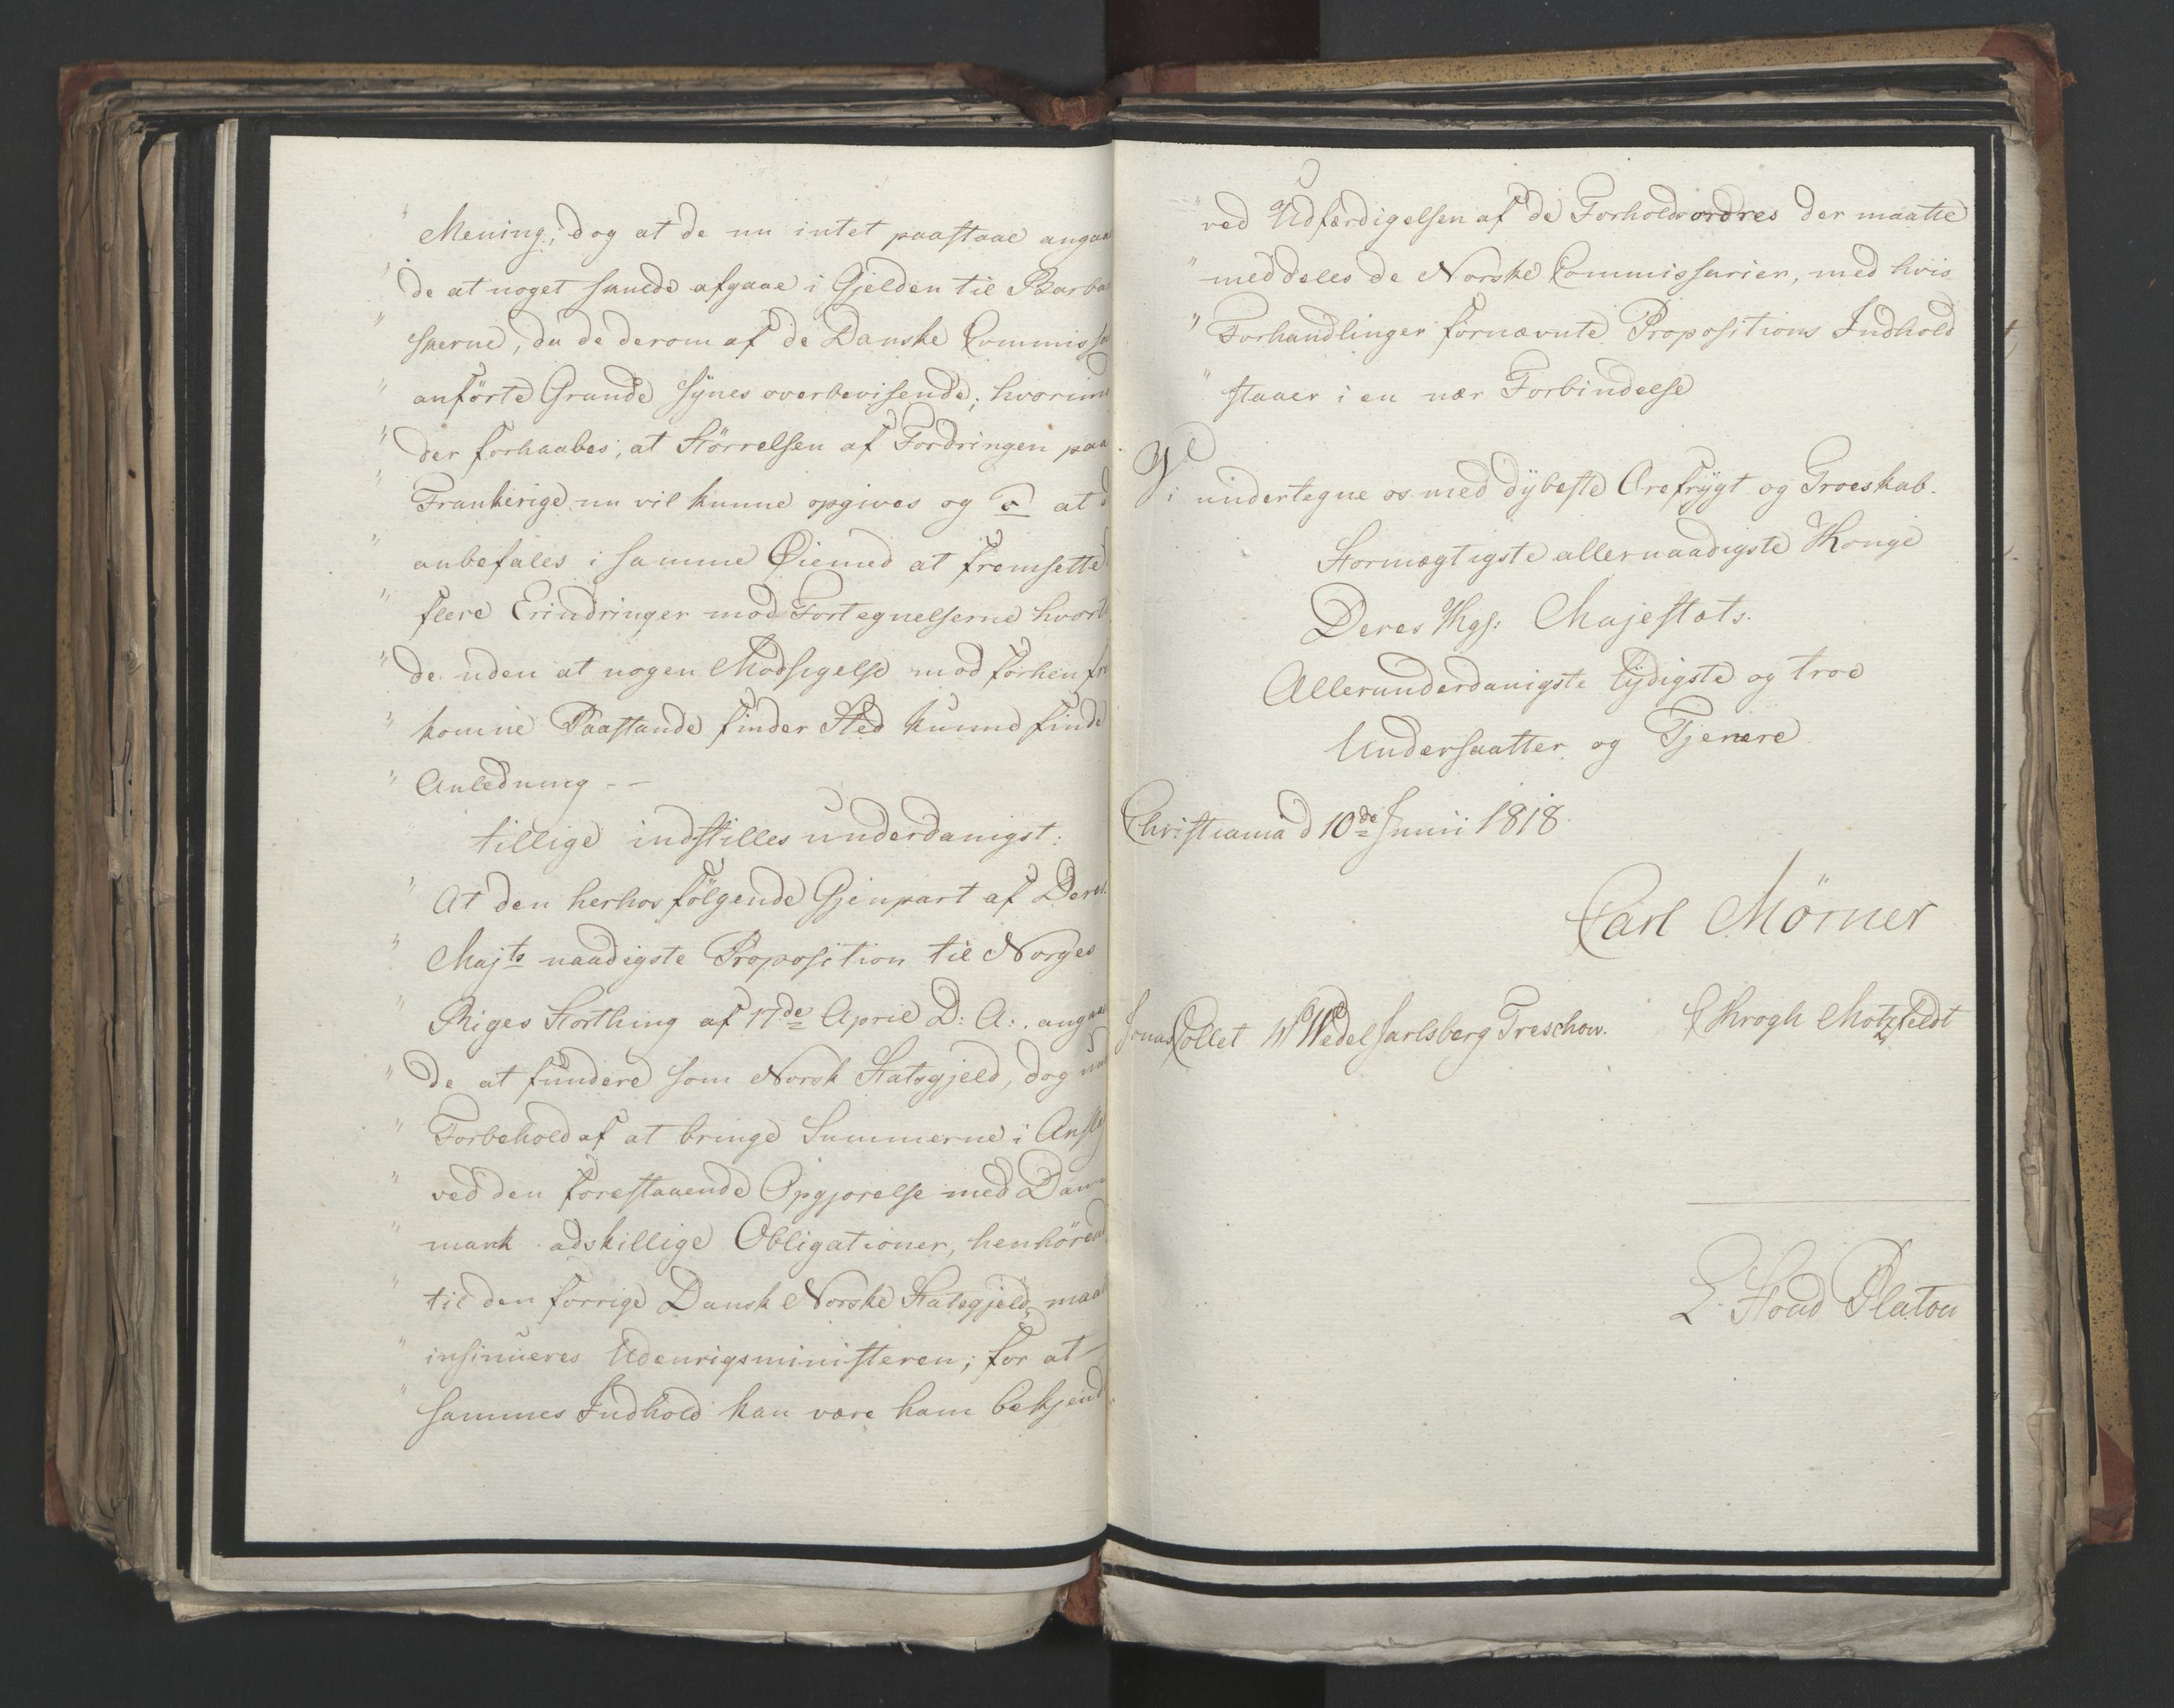 " Mening; dog at de nu intet paastaae angaa
" de at noget skulde afgaae i Gjelden til Barba
" skerne, da de derom af de Danske Commiss
" anförte Grunde synes overbevisende; hvorim
" der forhaabes, at Störrelsen af Fordringen paa
" Frankerige nu vil kunne opgives og at
" anbefales i samme Øiemed at fremsette
" flere Erindringer mod Fortegnelserne hvort
" de uden at nogen Modsigelse mod forhen fre
" komne Paastande finder Sted kunne finde
" Anledning --
tillige indstilles underdanigst:
" At den herhos fölgende Gjenpart af Deres
" Majts naadigste Proposition til Norges
" Riges Storthing af 17de April D: A:. angaae
" de at fundere som Norsk Statsgjeld, dog
" Forbehold af at bringe Summerne i Ansla
" ved den forestaaende Opgjørelse med Dan
" mark adskillige Obligationer, henhörend
" til den forrige Dansk Norske Statsgjeld, maa
" insinueres Udenrigsministeren; for at
" sammes Indhold kan være ham bekjend
" ved Udfærdigelsen af de Forholdsordres der maatte
" meddeles de Norske Commissarier, med hvis
" Forhandlinger fornævnte Propositions Indhold
" staaer i en nær Forbindelse
Vi undertegne os med dybeste Ærefrygt og Troeskab.
Stormægtigste allernaadigste Konge
Deres Kgs: Majestæts.
Allerunderdanigste lydigste og troe
Undersaatter og Tjenere
Christiania d 10de Junii 1818.
Carl Mörner
Jonas Collet W Wedel Jarlsberg Treschow. Krogh Motzfeldt
L. Stoud Platou